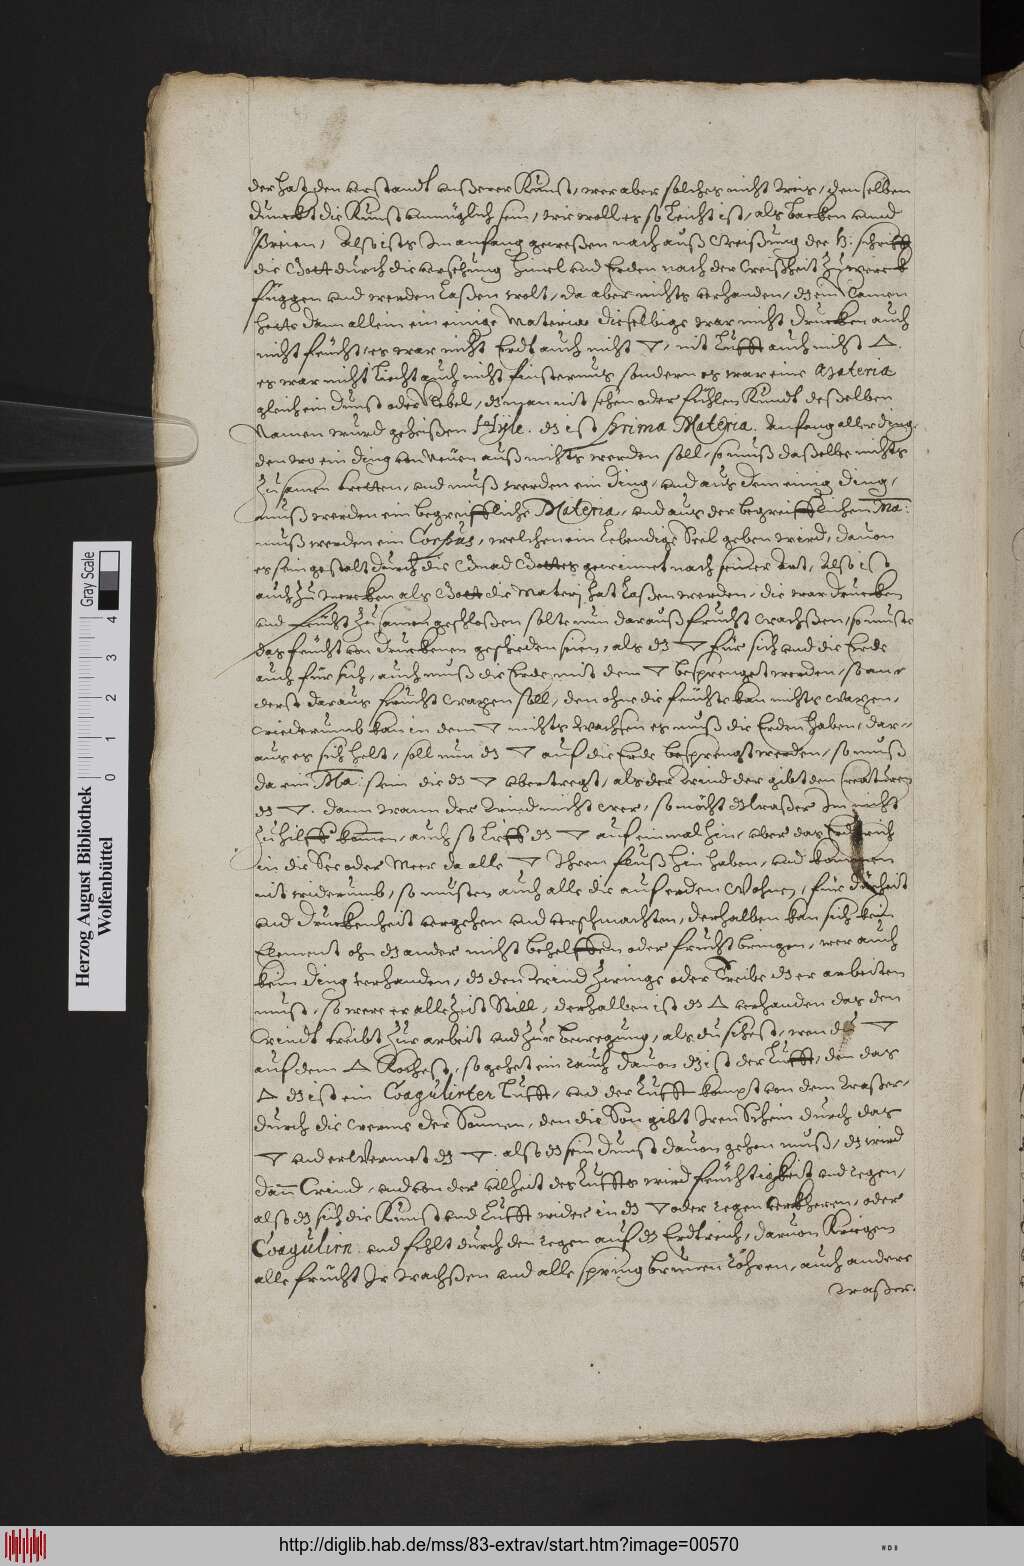 der hat den verstandt unßerer Kunst, wer aber solches nicht weis, denselben
dunckt die Kunst unmüglich sein, wie woll es so leicht ist, als backen unnd
Preien, Also ists Im anfang geweßen nach auß weißung der H: schrifft
die Gott durch die versehung himel und Erden nach der weißheit zu
függen und werden laßen wolt, da aber nichts verhanden, dz ein Namen
hette dann allein ein einige Materia dieselbige war nicht drucken auch
nicht feucht, es war nicht Erdt auch nicht ▽, nit Lufft auch nicht △.
es war nicht liecht auch nicht finsternus sondern es war eine Materia
gleich ein dunst oder Nebel, dz man nit sehen oder fühlen Kundt deßelben
Namen wurd geheißen Hÿle. dz ist prima Materia. Anfang aller ding.
den wo ein ding von Neuen auß nichts werden soll, so muß daßelbe nichts
zusamen tretten, und muß werden ein ding, und aus dem einig ding,
muß werden ein begreiffliche Materia, und aus der begreifflichen Ma:
muß werden ein Corpus, welchem ein lebendige Seel geben wird, davon
es sein gestalt durch die Gnad Gottes gewinnet nach seiner Art, Also ist
auch zu mercken als Gott die Materj hat laßen werden, die war drucken
und feucht zusamen geschloßen solte nun darauß frucht wachßen, so muste
das feucht von druckenen gescheiden sein, als dz ▽ für sich und die Erde
auch für sich, auch muß die Erde mit dem ▽ besprenget werden, so an
derst daraus frucht waxen soll, den ohne die feuchte kan nichts waxen,
wiederumb kan in dem ▽ nichts wachsen es muß die Erden haben, dar-
aus es sich helt, soll nun dz ▽ auf die Erde besprengt werden, so muß
da ein Ma: sein die dz ▽ übertregt, als der wind der gibt den Creaturen
dz ▽. dann wann der wind nicht wer, so möcht dz waßer Im nicht
zu hilff kommen, auch so lieff dz ▽ auf einmal hin, über das Erdtreich
in die See oder Meer da alle ▽ Ihren fluß hin haben, und kommen
nit widerumb, so musten auch alle die auf erden wohnen, für
und druckenheit vergehen und verschmachten, derhalben kan sich kein
Element ohn dz ander nicht behelffen oder frucht bringen, wer auch
kein ding verhanden, dz den wind zwinge oder treibe dz er arbeiten
must, so were er allezeit Still, derhalben ist dz △ verhanden das den
windt treibt zur arbeit und zur bewegung, als du sihest, wen du ▽
auf dem △ Kochest, so gehet ein rauch davon dz ist der Lufft, den das
△ dz ist ein Coagulirter Lufft, und der Lufft kompt von dem waßer,
durch die werme der Sonnen, den die Son gibt Iren Schein durch das
▽ und erwermet dz ▽. also dz sein dunst davon gehen muß, dz wird
dann wind, und von der vilheit des Luffts wird feuchtigkeit und regen,
also dz sich die Kunst und Lufft wider in dz ▽ oder regen verkheren, oder
Coagulirn. und fehlt durch den regen auf dz Erdtreich, davon Kriegen
alle frucht Ir wachßen und alle spring brunen röhren, auch andere
waßer.
Herzog August Bibliothek
Wolfenbüttel
Gray Scale
0 1 2 3 4
http://diglib.hab.de/mss/83-extrav/start.htm?image=00570